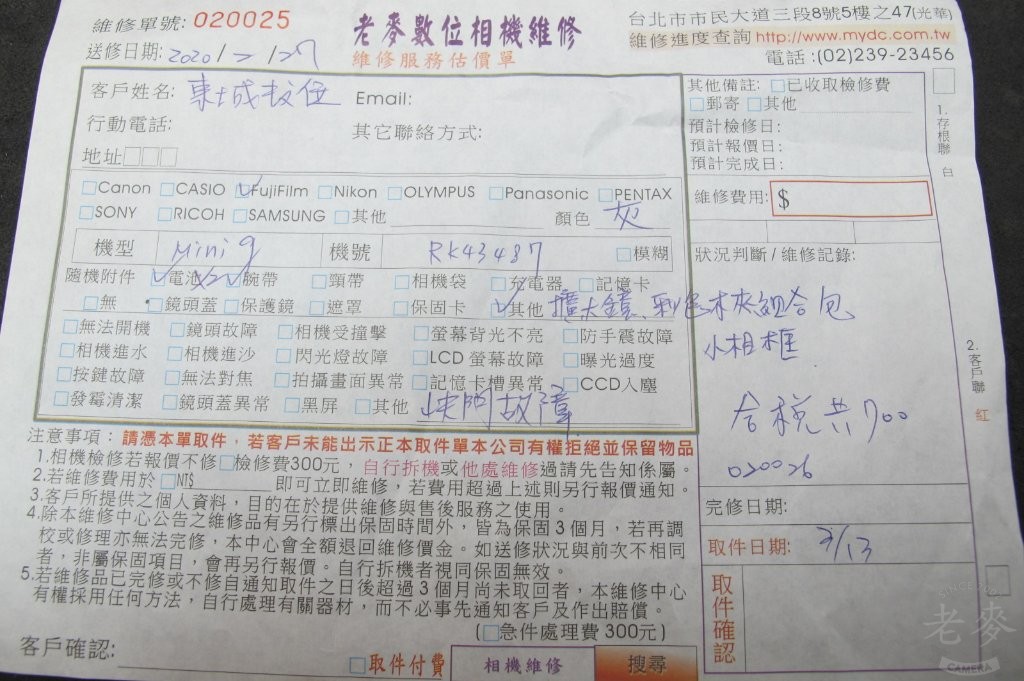 維修單號: 020025
老麥數位相機維修
台北市市民大道三段8號5樓之47(光華)
送修日期: 2020/2/27
維修服務估價單
維修進度查詢 http://www.mydc.com.tw
電話:(02)239-23456
客戶姓名: Email:
行動電話: 其它聯絡方式:
地址□□□
其他備註: □已收取檢修費
□郵寄 □其他
預計檢修日:
預計報價日:
預計完成日:
1.存根聯 白
□Canon □CASIO □FujiFilm □Nikon □OLYMPUS □Panasonic □PENTAX
□SONY □RICOH □SAMSUNG □其他 顏色 灰
維修費用: $
機型 Mini 9 機號 RK43487 □模糊
狀況判斷/維修記錄:
隨機附件 □電池x2 □腕帶 □頸帶 □相機袋 □充電器 □記憶卡
□無 □鏡頭蓋 □保護鏡 □遮罩 □保固卡 □其他 擴大鏡、彩色木夾組合包
小相框
□無法開機 □鏡頭故障 □相機受撞擊 □螢幕背光不亮 □防手震故障
□相機進水 □相機進沙 □閃光燈故障 □LCD螢幕故障 □曝光過度
□按鍵故障 □無法對焦 □拍攝畫面異常 □記憶卡槽異常 □CCD入塵
□發霉清潔 □鏡頭蓋異常 □黑屏 □其他 快門故障
含稅共700
020026
2.客戶聯 紅
注意事項：請憑本單取件，若客戶未能出示正本取件單本公司有權拒絕並保留物品
1.相機檢修若報價不修□檢修費300元，自行拆機或他處維修過請先告知係屬。
2.若維修費用於□NT$ 即可立即維修，若費用超過上述則另行報價通知。
3.客戶所提供之個人資料，目的在於提供維修與售後服務之使用。
4.除本維修中心公告之維修品有另行標出保固時間外，皆為保固3個月，若再調
校或修理亦無法完修，本中心會全額退回維修價金。如送修狀況與前次不相同
者，非屬保固項目，會再另行報價。自行拆機者視同保固無效。
5.若維修品已完修或不修自通知取件之日後超過3個月尚未取回者，本維修中心
有權採用任何方法，自行處理有關器材，而不必事先通知客戶及作出賠償。
(□急件處理費 300元)
完修日期:
取件日期: 3/13
取件確認
客戶確認:
□取件付費 相機維修 搜尋
老麥
CAMERA